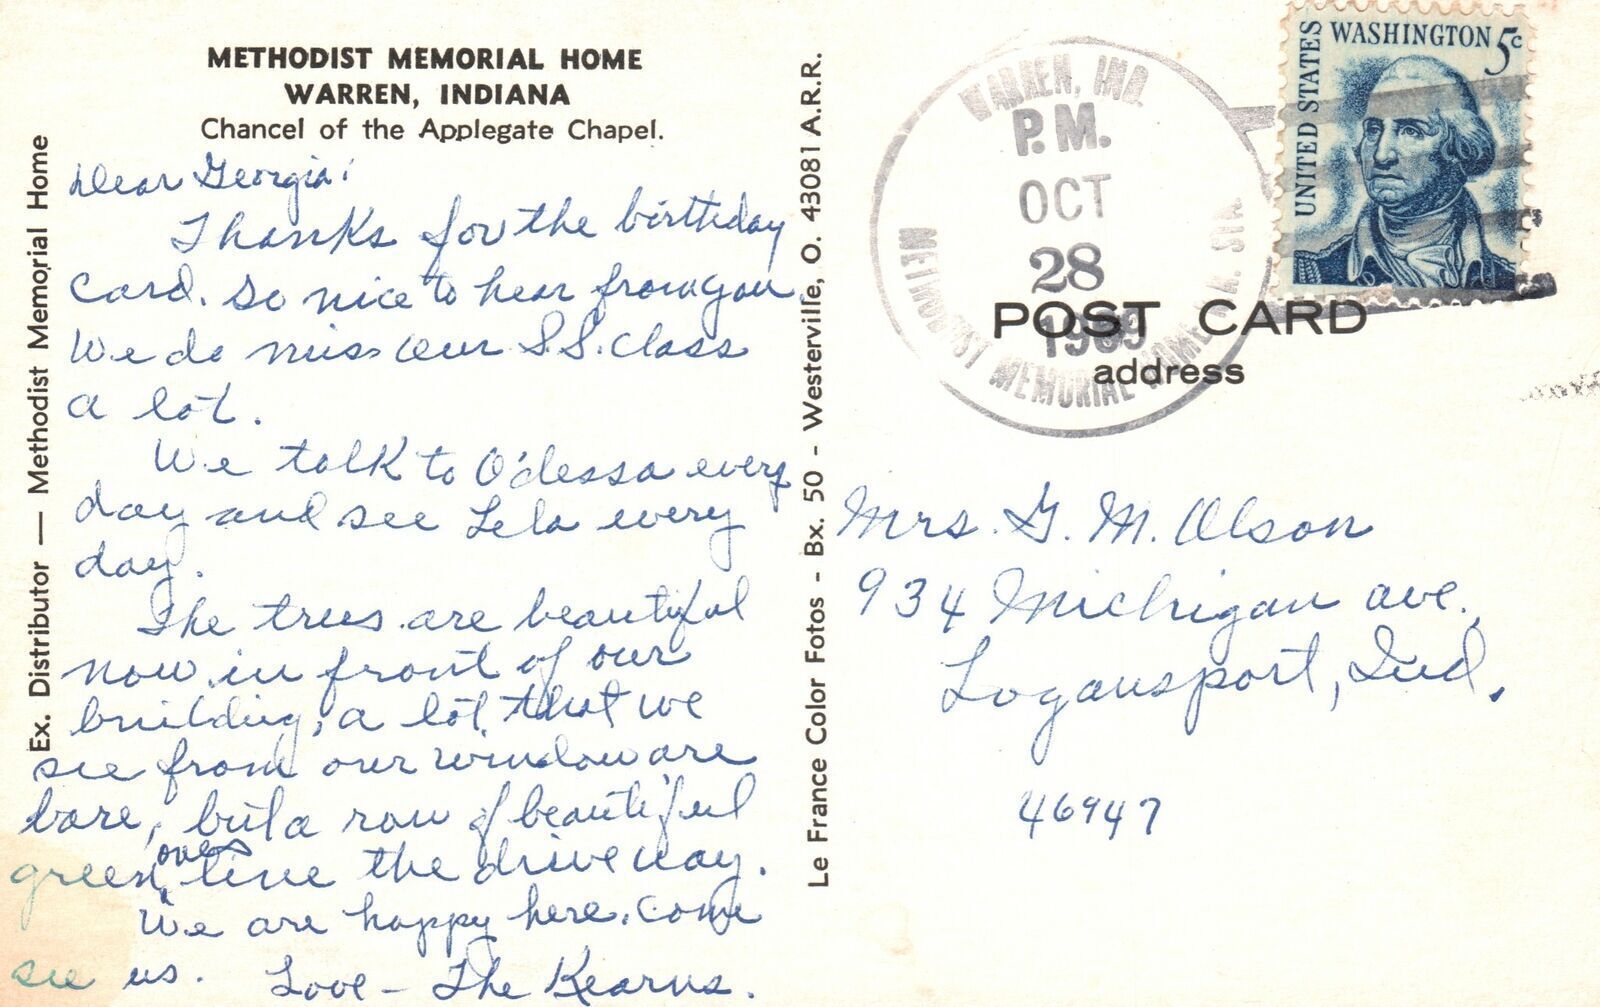 METHODIST MEMORIAL HOME
WARREN, INDIANA
Chancel of the Applegate Chapel.
Dear Georgia:
Thanks for the birthday
card. So nice to hear from you
We do miss our S.S. class
a lot.
We talk to O'dessa every
day and see Lela every
day.
The trees are beautiful
now in front of our
building, a lot that we
see from our window are
bare, but a row of beautiful
green ones line the driveway.
We are happy here. Come
see us. Love - The Kearns.
Ex. Distributor — Methodist Memorial Home
Le France Color Fotos - Bx. 50 - Westerville, O. 43081 A.R.R.
WARREN, IND.
P.M.
OCT
28
METHODIST MEMORIAL HOME STA.
UNITED STATES
WASHINGTON 5c
POST CARD
address
Mrs. G. M. Olson
934 Michigan ave.
Logansport, Ind.
46947